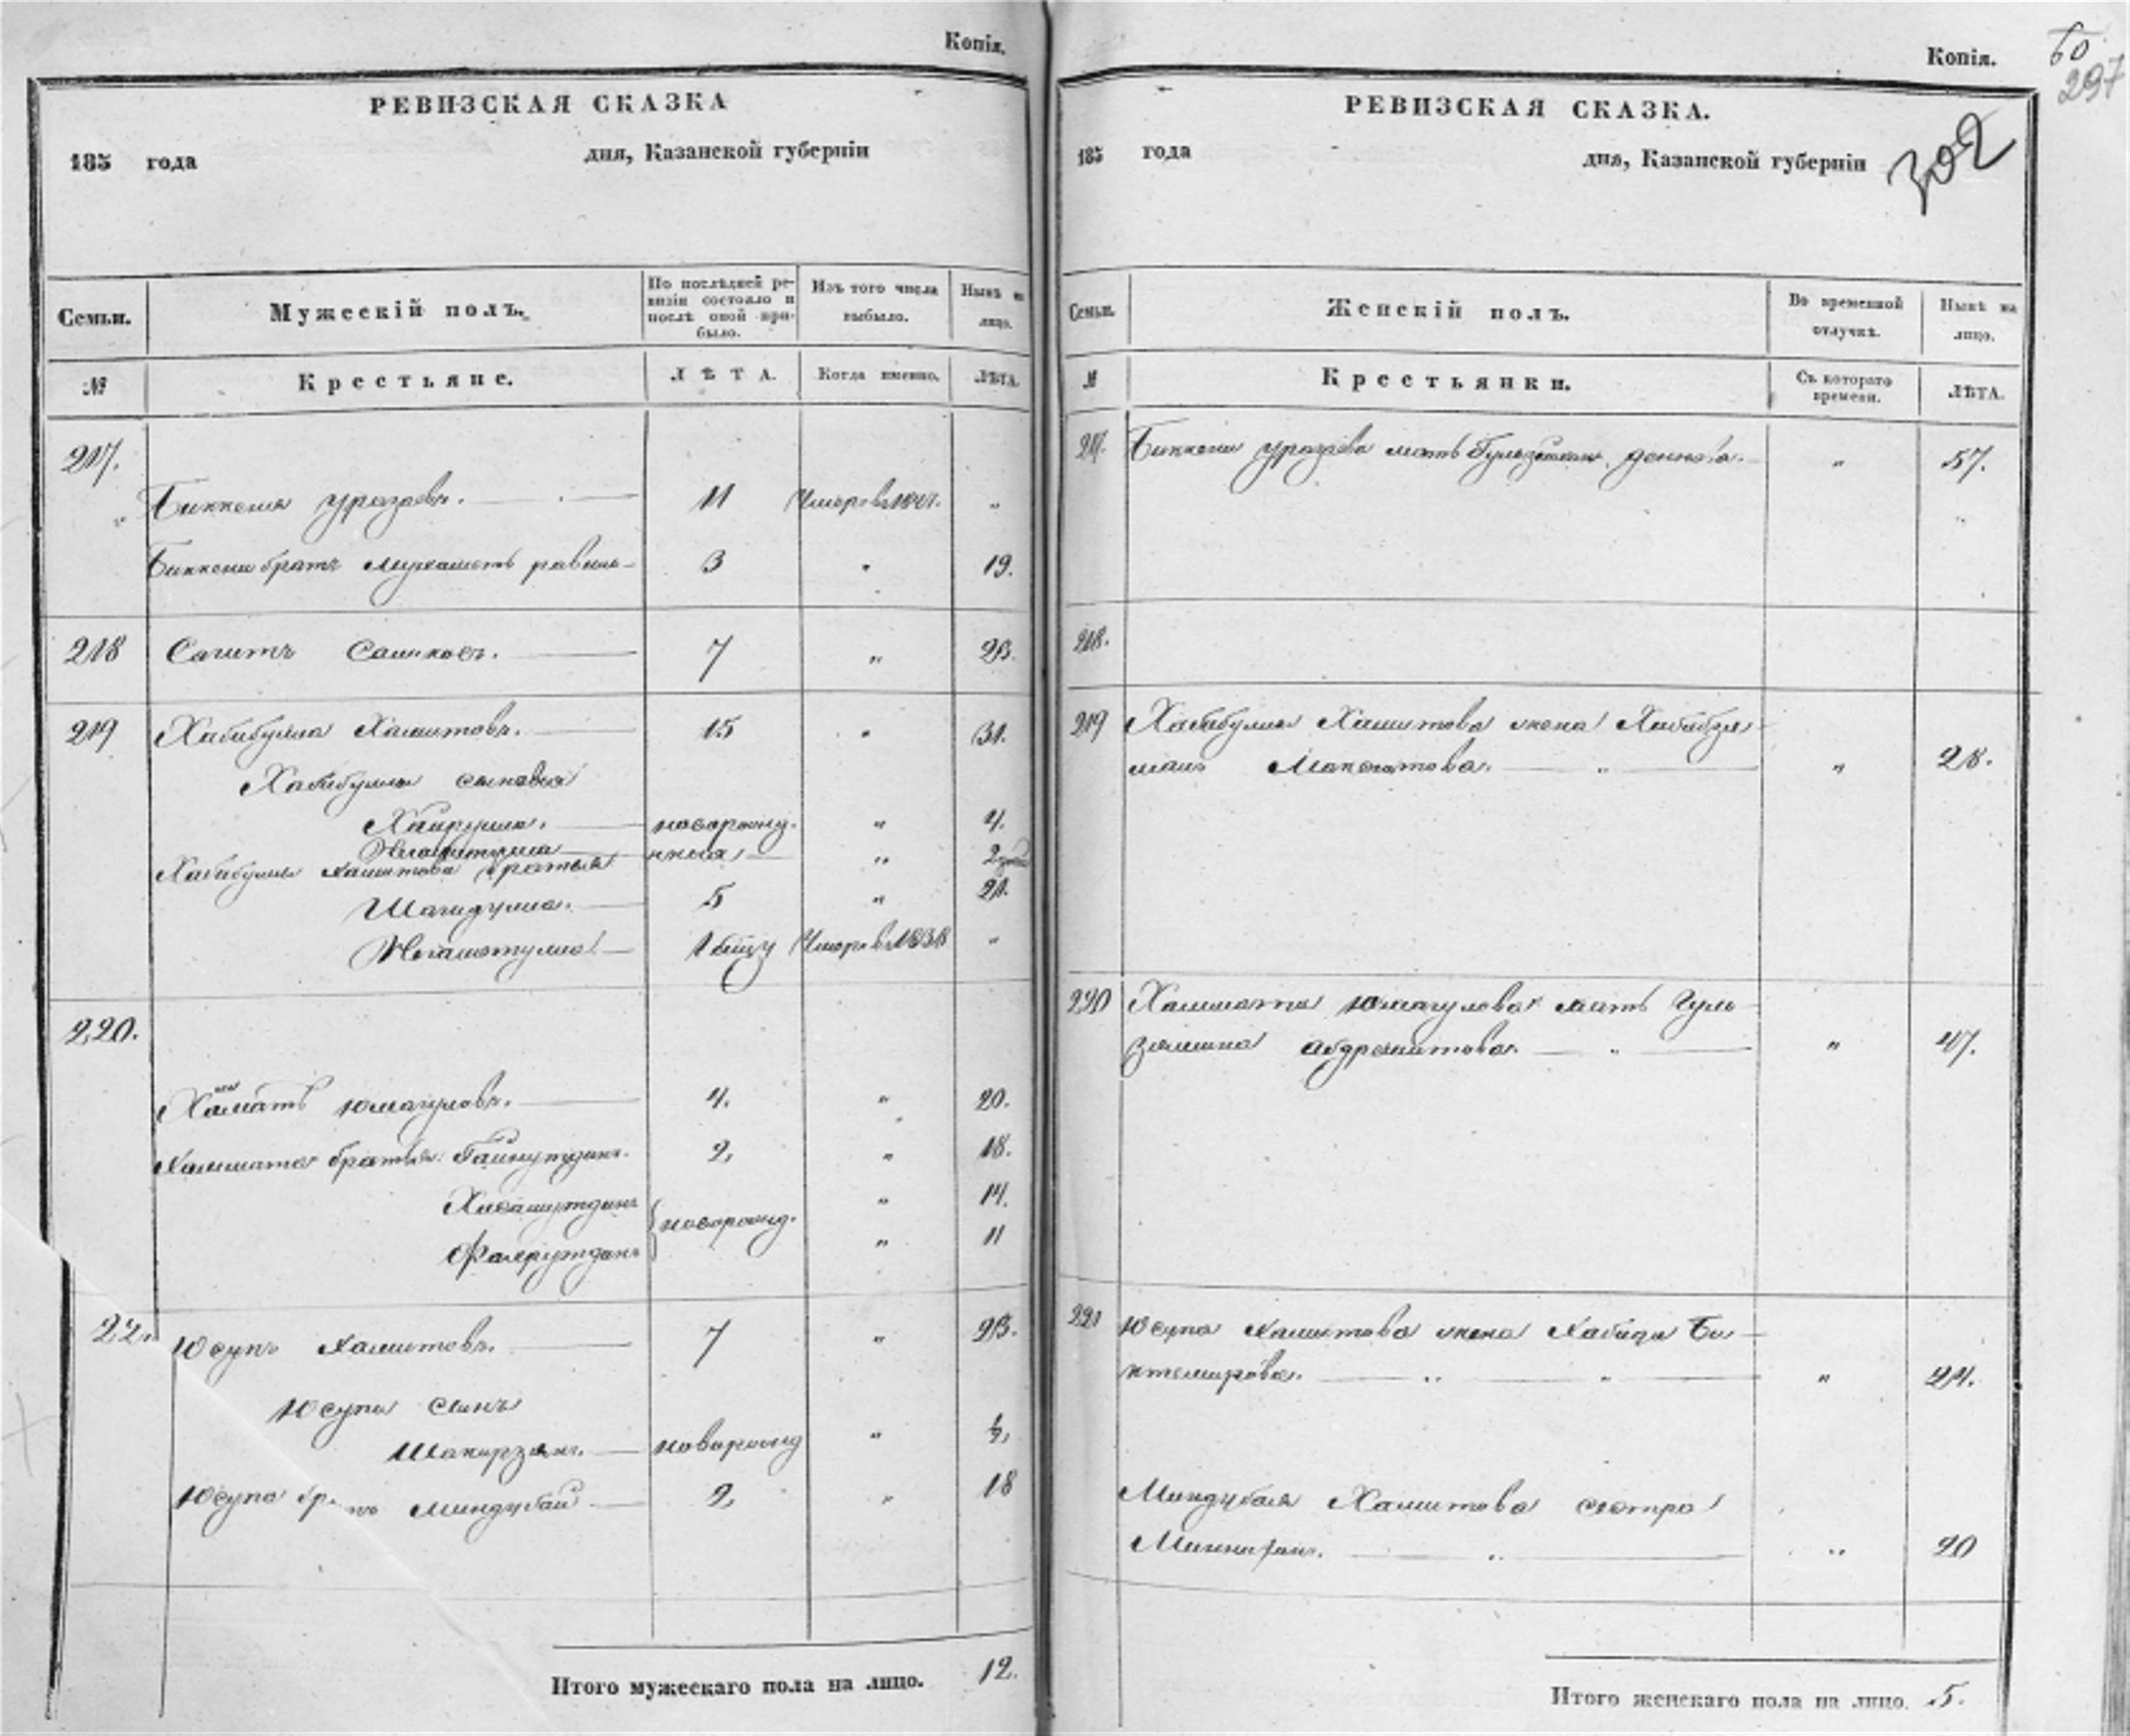 Копія.
РЕВИЗСКАЯ СКАЗКА
185 года дня, Казанской губерніи
Семьи. Мужескій полъ. По послѣдней ре-
визіи состояло и
послѣ оной при-
было. Изъ того числа
выбыло. Нынѣ на
лицо.
№ Крестьяне. ЛѢТА. Когда именно. ЛѢТА.
217.
Биккеня Уразаевъ. 11 Умеръ в "
Биккени братъ 3 " 19.
218 Сагитъ 7 " 23.
219 Хабибулла Хамитовъ. 15 " 31.
Хабибуллы сыновья
Хайрулла. новорожд. " 4.
" 2
Хабибуллы Хамитова братья
Шагидулла. 5 " 21.
Негаметулла. 1 Умеръ в 1838 "
220.
Хамматъ Юмагуловъ. 4. " 20.
Хаммата братья Гайнутдинъ. 2, " 18.
Хисамутдинъ новорожд. " 14.
Фахрутдинъ " 11
22. Юсупъ Хамитовъ. 7 " 23.
Юсупа сынъ
Шакирзянъ. новорожд " ½,
Юсупа бр. тъ Миндубай 2, " 18
Итого мужескаго пола на лицо. 12.
Копія.
50
297
РЕВИЗСКАЯ СКАЗКА.
302
185 года дня, Казанской губерніи
Семьи. Женскій полъ. Во временной
отлучкѣ. Нынѣ на
лицо.
№ Крестьянки. Съ котораго
времени. ЛѢТА.
217. Биккени Уразаева мать " 57.
218.
219 Хабибуллы Хамитова жена Хабибзя-
мал " 28.
220 Хаммата Юмагулова мать Гуль-
Абдрешитова. " 47.
221 Юсупа Хамитова жена Бе-
ктемирова. " 24.
Миндубая Хамитова сестра
" 20
Итого женскаго пола на лицо. 5.